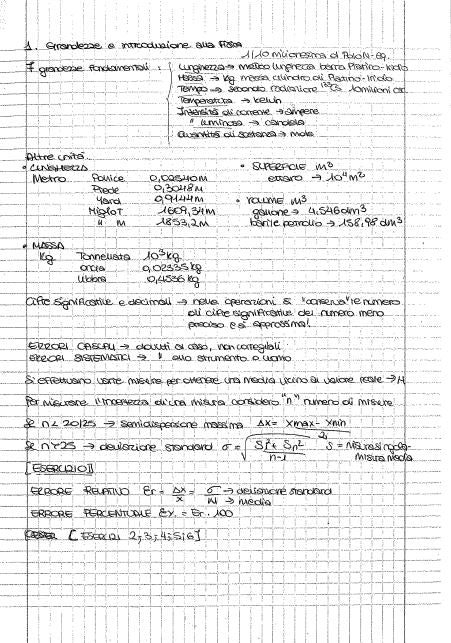 1. Grandezze e introduzione alla Fisica
1/10 milionesimo di Polo N-eq.
7 grandezze fondamentali: Lunghezza → metro lunghezza barra Platino-Iridio
Massa → kg massa cilindro di Platino-Iridio
Tempo → secondo radiazione ¹³³Cs
Temperatura → kelvin
Intensità di corrente → ampere
" luminosa → candela
Quantità di sostanza → mole
Altre unità..
• LUNGHEZZA
Metro Pollice 0,02540m
Piede 0,3048m
Yard 0,9144m
Miglio T 1609,34m
" M 1853,2m
• SUPERFICIE m²
ettaro → 10⁴m²
• VOLUME m³
gallone → 4,546dm³
barile petrolio → 158,98dm³
• MASSA
Kg Tonnellata 10³kg
oncia 0,02835kg
libbra 0,4536kg
Cifre significative e decimali → nelle operazioni si "conserva" il numero
di cifre significative del numero meno
preciso e si approssima!
ERRORI CASUALI → dovuti al caso, non corregibili
ERRORI SISTEMATICI → " allo strumento o uomo
Si effettuano varie misure per ottenere una media vicino al valore reale → M
Per misurare l'incertezza di una misura considero "n" numero di misure
Se n < 20/25 → semidispersione massima Δx = xmax - xmin
Se n > 25 → deviazione standard σ = √ S₁² + Sn² / n-1 S = misura singola-
misura media
[ESERCIZIO 1]
ERRORE RELATIVO Er = Δx/x = σ/M → deviazione standard
→ media
ERRORE PERCENTUALE E% = Er · 100
[ESERCIZI 2; 3; 4; 5; 6]